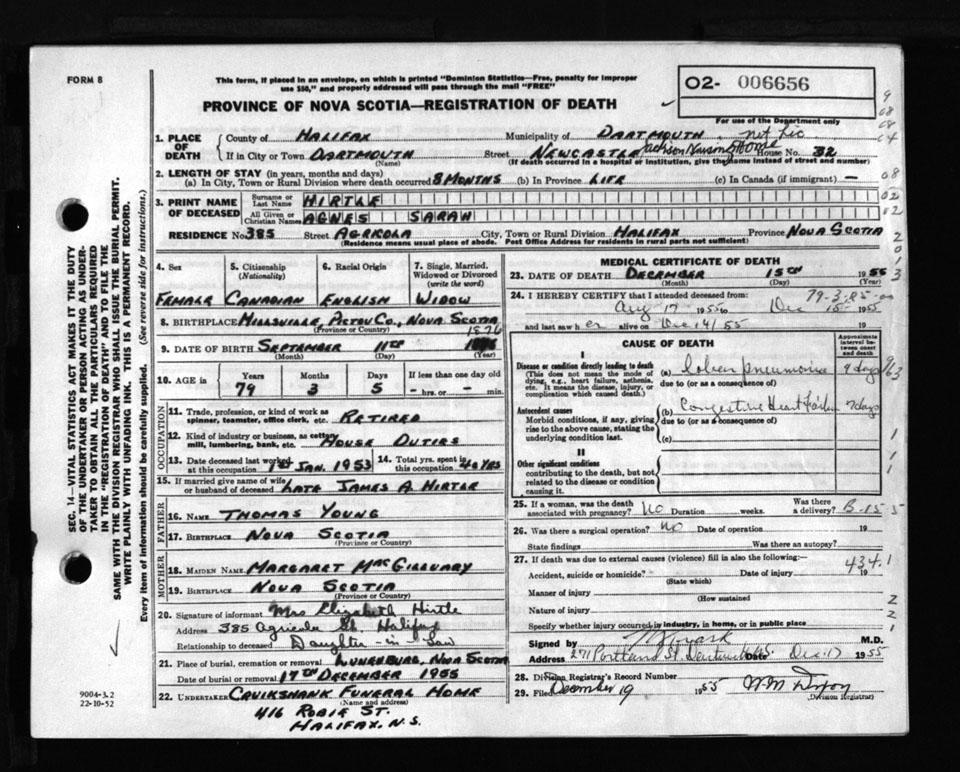 FORM 8
This form, if placed in an envelope, on which is printed "Dominion Statistics—Free, penalty for improper
use $50," and properly addressed will pass through the mail "FREE"
O2- 006656
PROVINCE OF NOVA SCOTIA—REGISTRATION OF DEATH
For use of the Department only
1. PLACE OF DEATH
County of HALIFAX Municipality of DARTMOUTH
If in City or Town DARTMOUTH Street NEWCASTLE Nursing Home House No. 32
(Name) (If death occurred in a hospital or institution, give the name instead of street and number)
2. LENGTH OF STAY (in years, months and days)
(a) In City, Town or Rural Division where death occurred 8 MONTHS (b) In Province LIFE (c) In Canada (if immigrant) —
3. PRINT NAME OF DECEASED
Surname or Last Name HIRTLE
All Given or Christian Names AGNES SARAH
RESIDENCE No. 385 Street AGRICOLA City, Town or Rural Division HALIFAX Province NOVA SCOTIA
(Residence means usual place of abode. Post Office Address for residents in rural parts not sufficient)
4. Sex 5. Citizenship (Nationality) 6. Racial Origin 7. Single, Married, Widowed or Divorced (write the word)
FEMALE CANADIAN ENGLISH WIDOW
8. BIRTHPLACE MILLSVILLE, PICTOU CO., NOVA SCOTIA
(Province or Country)
1876
9. DATE OF BIRTH SEPTEMBER 11TH
(Month) (Day) (Year)
10. AGE in Years Months Days If less than one day old
79 3 5 - hrs. or - min.
OCCUPATION
11. Trade, profession, or kind of work as spinner, teamster, office clerk, etc. RETIRED
12. Kind of industry or business, as cotton mill, lumbering, bank, etc. HOUSE DUTIES
13. Date deceased last worked at this occupation 1ST JAN. 1953 14. Total yrs. spent in this occupation 40 YRS
15. If married give name of wife or husband of deceased LATE JAMES A HIRTLE
FATHER
16. NAME THOMAS YOUNG
17. BIRTHPLACE NOVA SCOTIA
(Province or Country)
MOTHER
18. MAIDEN NAME MARGARET MacGILLVARY
19. BIRTHPLACE NOVA SCOTIA
(Province or Country)
20. Signature of informant Mrs Elizabeth Hirtle
Address 385 Agricola St. Halifax
Relationship to deceased Daughter-in-Law
21. Place of burial, cremation or removal LUNENBURG, NOVA SCOTIA
Date of burial or removal 17TH DECEMBER 1955
22. UNDERTAKER CRUIKSHANK FUNERAL HOME
(Name and address)
416 ROBIE ST.
HALIFAX, N.S.
MEDICAL CERTIFICATE OF DEATH
23. DATE OF DEATH DECEMBER 15TH 1955
(Month) (Day) (Year)
24. I HEREBY CERTIFY that I attended deceased from: 79-3-85
Aug 17 1955 to Dec 15 1955
and last saw her alive on Dec 14/55 19
CAUSE OF DEATH
Approximate interval between onset and death
I
Disease or condition directly leading to death (a) Lobar pneumonia 9 days
(This does not mean the mode of dying, e.g., heart failure, asthenia, etc. It means the disease, injury, or complication which caused death.)
due to (or as a consequence of)
Antecedent causes (b) Congestive Heart Failure 7 days
Morbid conditions, if any, giving rise to the above cause, stating the underlying condition last.
due to (or as a consequence of)
(c)
II
Other significant conditions
contributing to the death, but not related to the disease or condition causing it.
25. If a woman, was the death associated with pregnancy? NO Duration weeks. Was there a delivery?
26. Was there a surgical operation? NO Date of operation 19
State findings Was there an autopsy?
27. If death was due to external causes (violence) fill in also the following:—
434.1
Accident, suicide or homicide? Date of injury 19
(State which)
Manner of injury
(How sustained
Nature of injury
Specify whether injury occurred in industry, in home, or in public place
Signed by M.D.
Address 271 Portland St. Dartmouth Date Dec. 17 1955
28. Division Registrar's Record Number
29. Filed December 19 1955
(Division Registrar)
SEC. 14—VITAL STATISTICS ACT MAKES IT THE DUTY
OF THE UNDERTAKER OR PERSON ACTING AS UNDERTAKER
TO OBTAIN ALL THE PARTICULARS REQUIRED
IN THE "REGISTRATION OF DEATH" AND TO FILE THE
SAME WITH THE DIVISION REGISTRAR WHO SHALL ISSUE THE BURIAL PERMIT.
WRITE PLAINLY WITH UNFADING INK. THIS IS A PERMANENT RECORD.
Every item of information should be carefully supplied. (See reverse side for instructions.)
9004-3.2
22-10-52